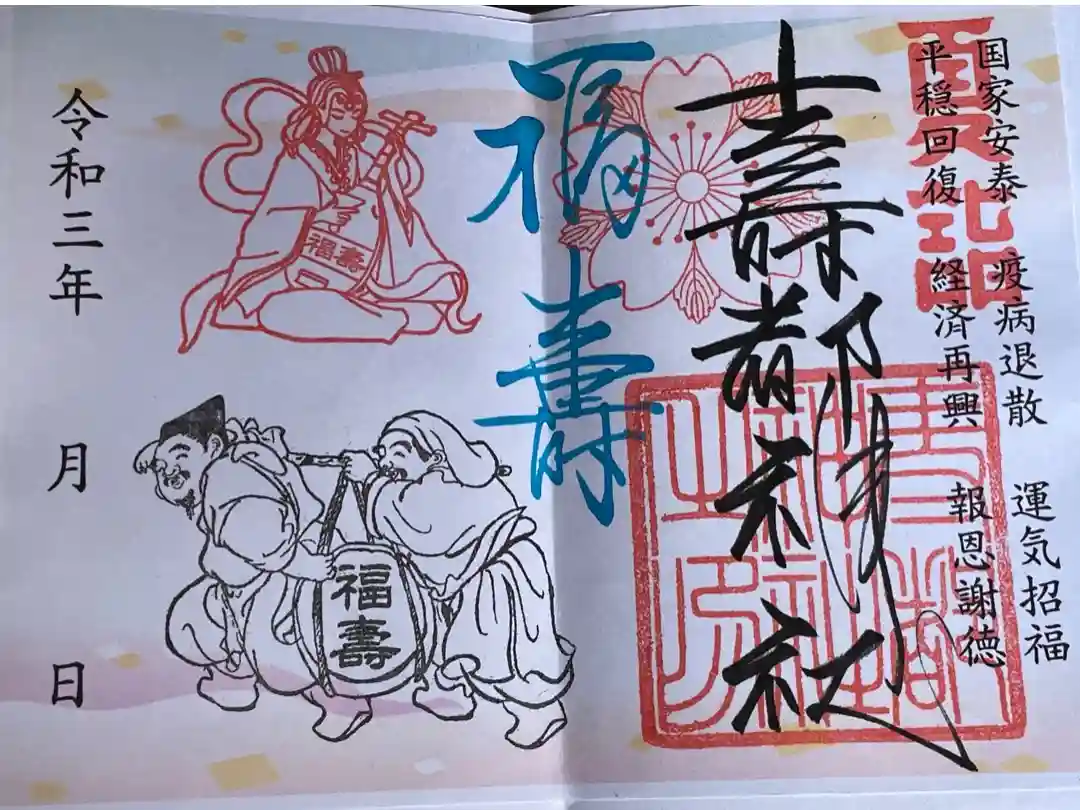 国家安泰 疫病退散 運気招福
平穏回復 経済再興 報恩謝徳
壽都神社
壽都
神社
之印
福壽
福壽
福壽
令和三年 月 日